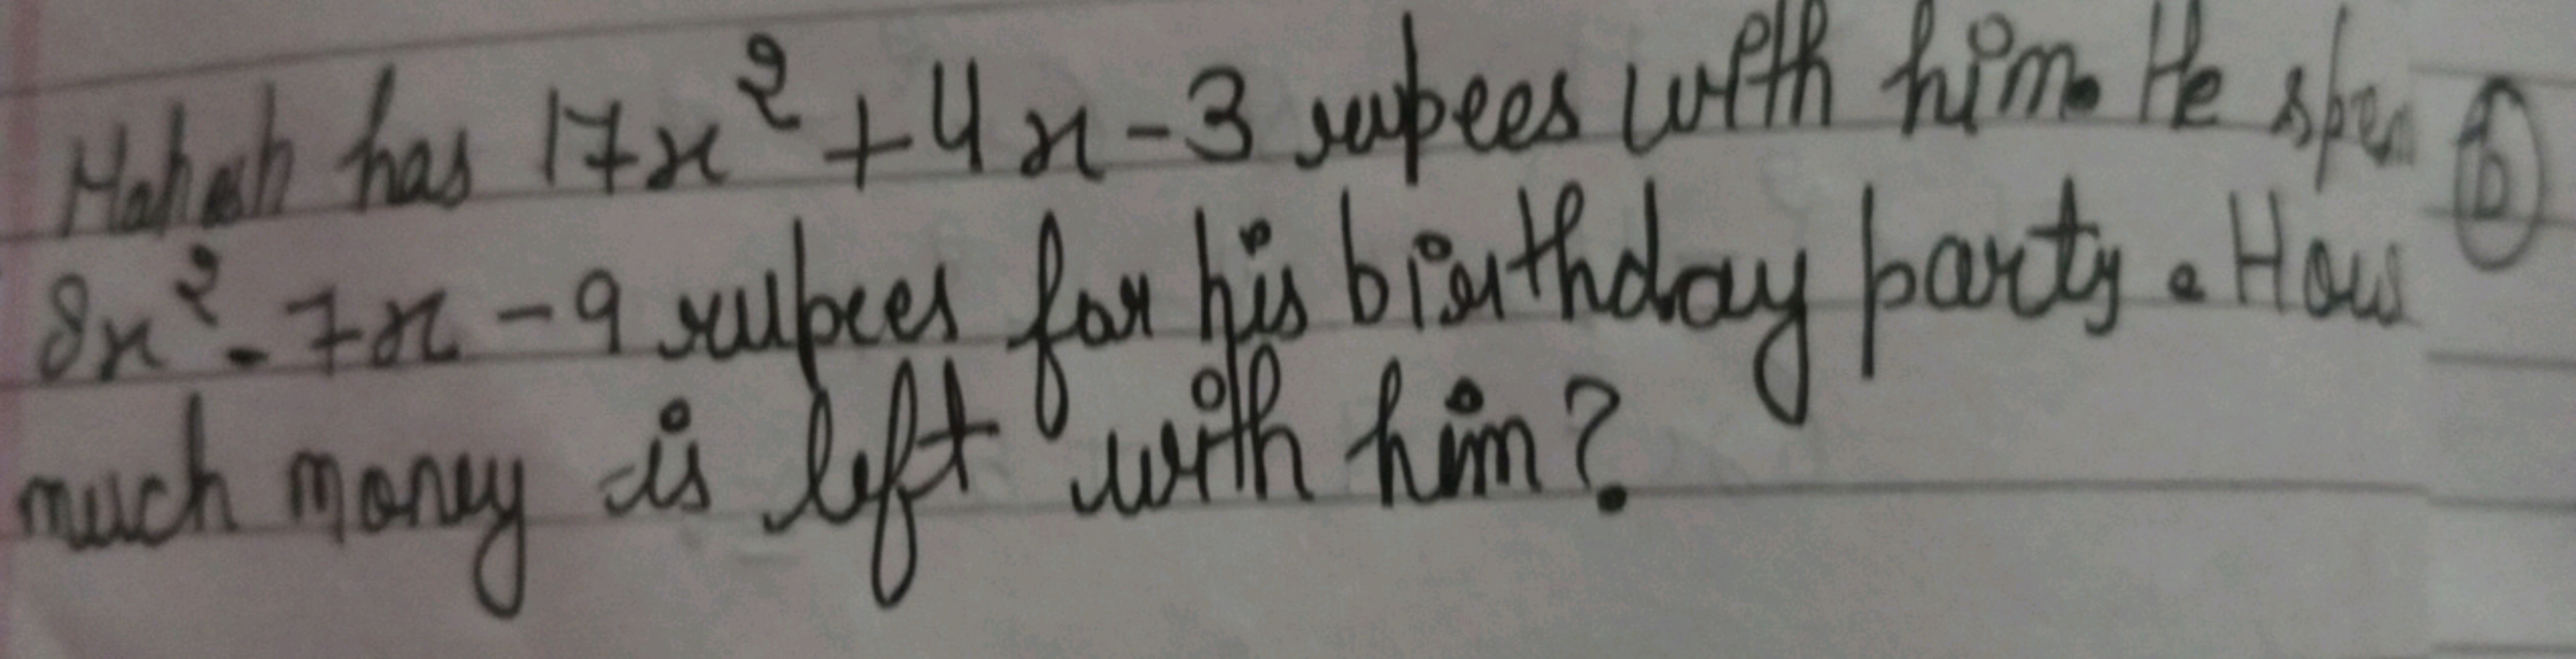 Mahesh has 17x² + 4x - 3 rupees with him. He spen
8x² - 7x - 9 rupees for his birthday party. How
much money is left with him?